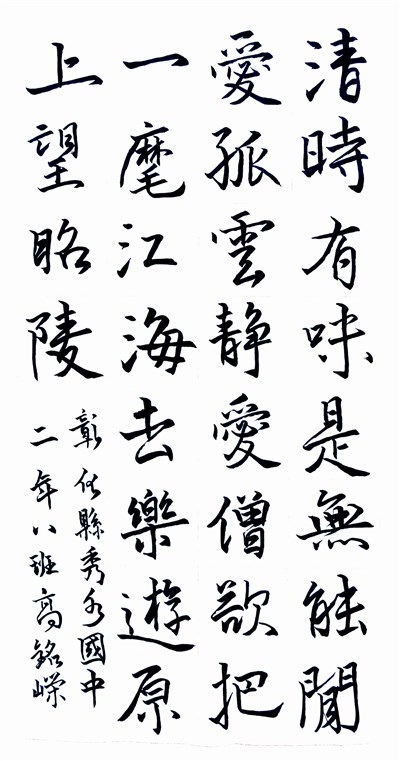 清時有味是無能閒
愛孤雲靜愛僧欲把
一麾江海去樂遊原
上望昭陵
彰化縣秀水國中
二年八班高銘嶸